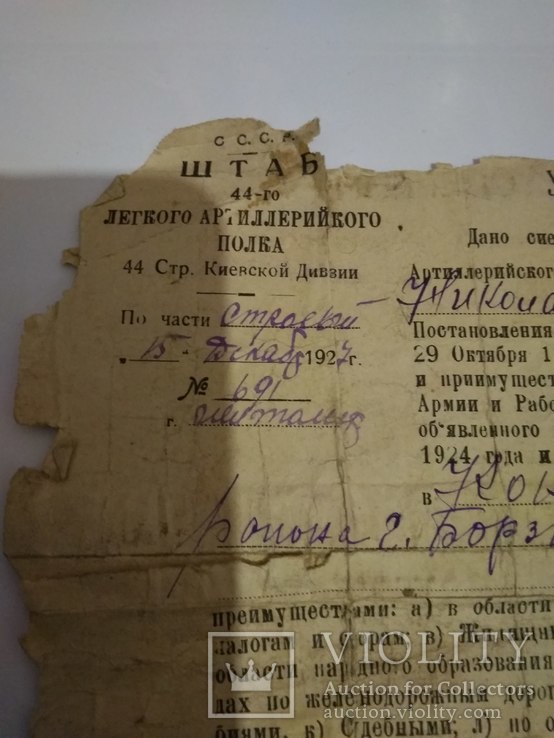 С. С. С. Р.
ШТАБ
44-го
ЛЕГКОГО АРТИЛЛЕРИЙКОГО
ПОЛКА
44 Стр. Киевской Дивзии
По части Строевый
"15" Декаб 1927г.
№ 691
г. Житомир
У
Дано сие
Артиллерийского
Никола
Постановления
29 Октября 1
и приимущест
Армии и Рабо
об'явленного
1924 года и
в
района с. Борз
преимуществами: а) в области
налогам и сборам; в) Жилищн
области народного образования
дах по железнодорожным дорог
биями, к) Судебными; л) по о
VIOLITY
Auction for Collectors
auction.violity.com